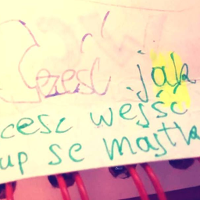 Cześć jak
cesc wejść
up se mastka